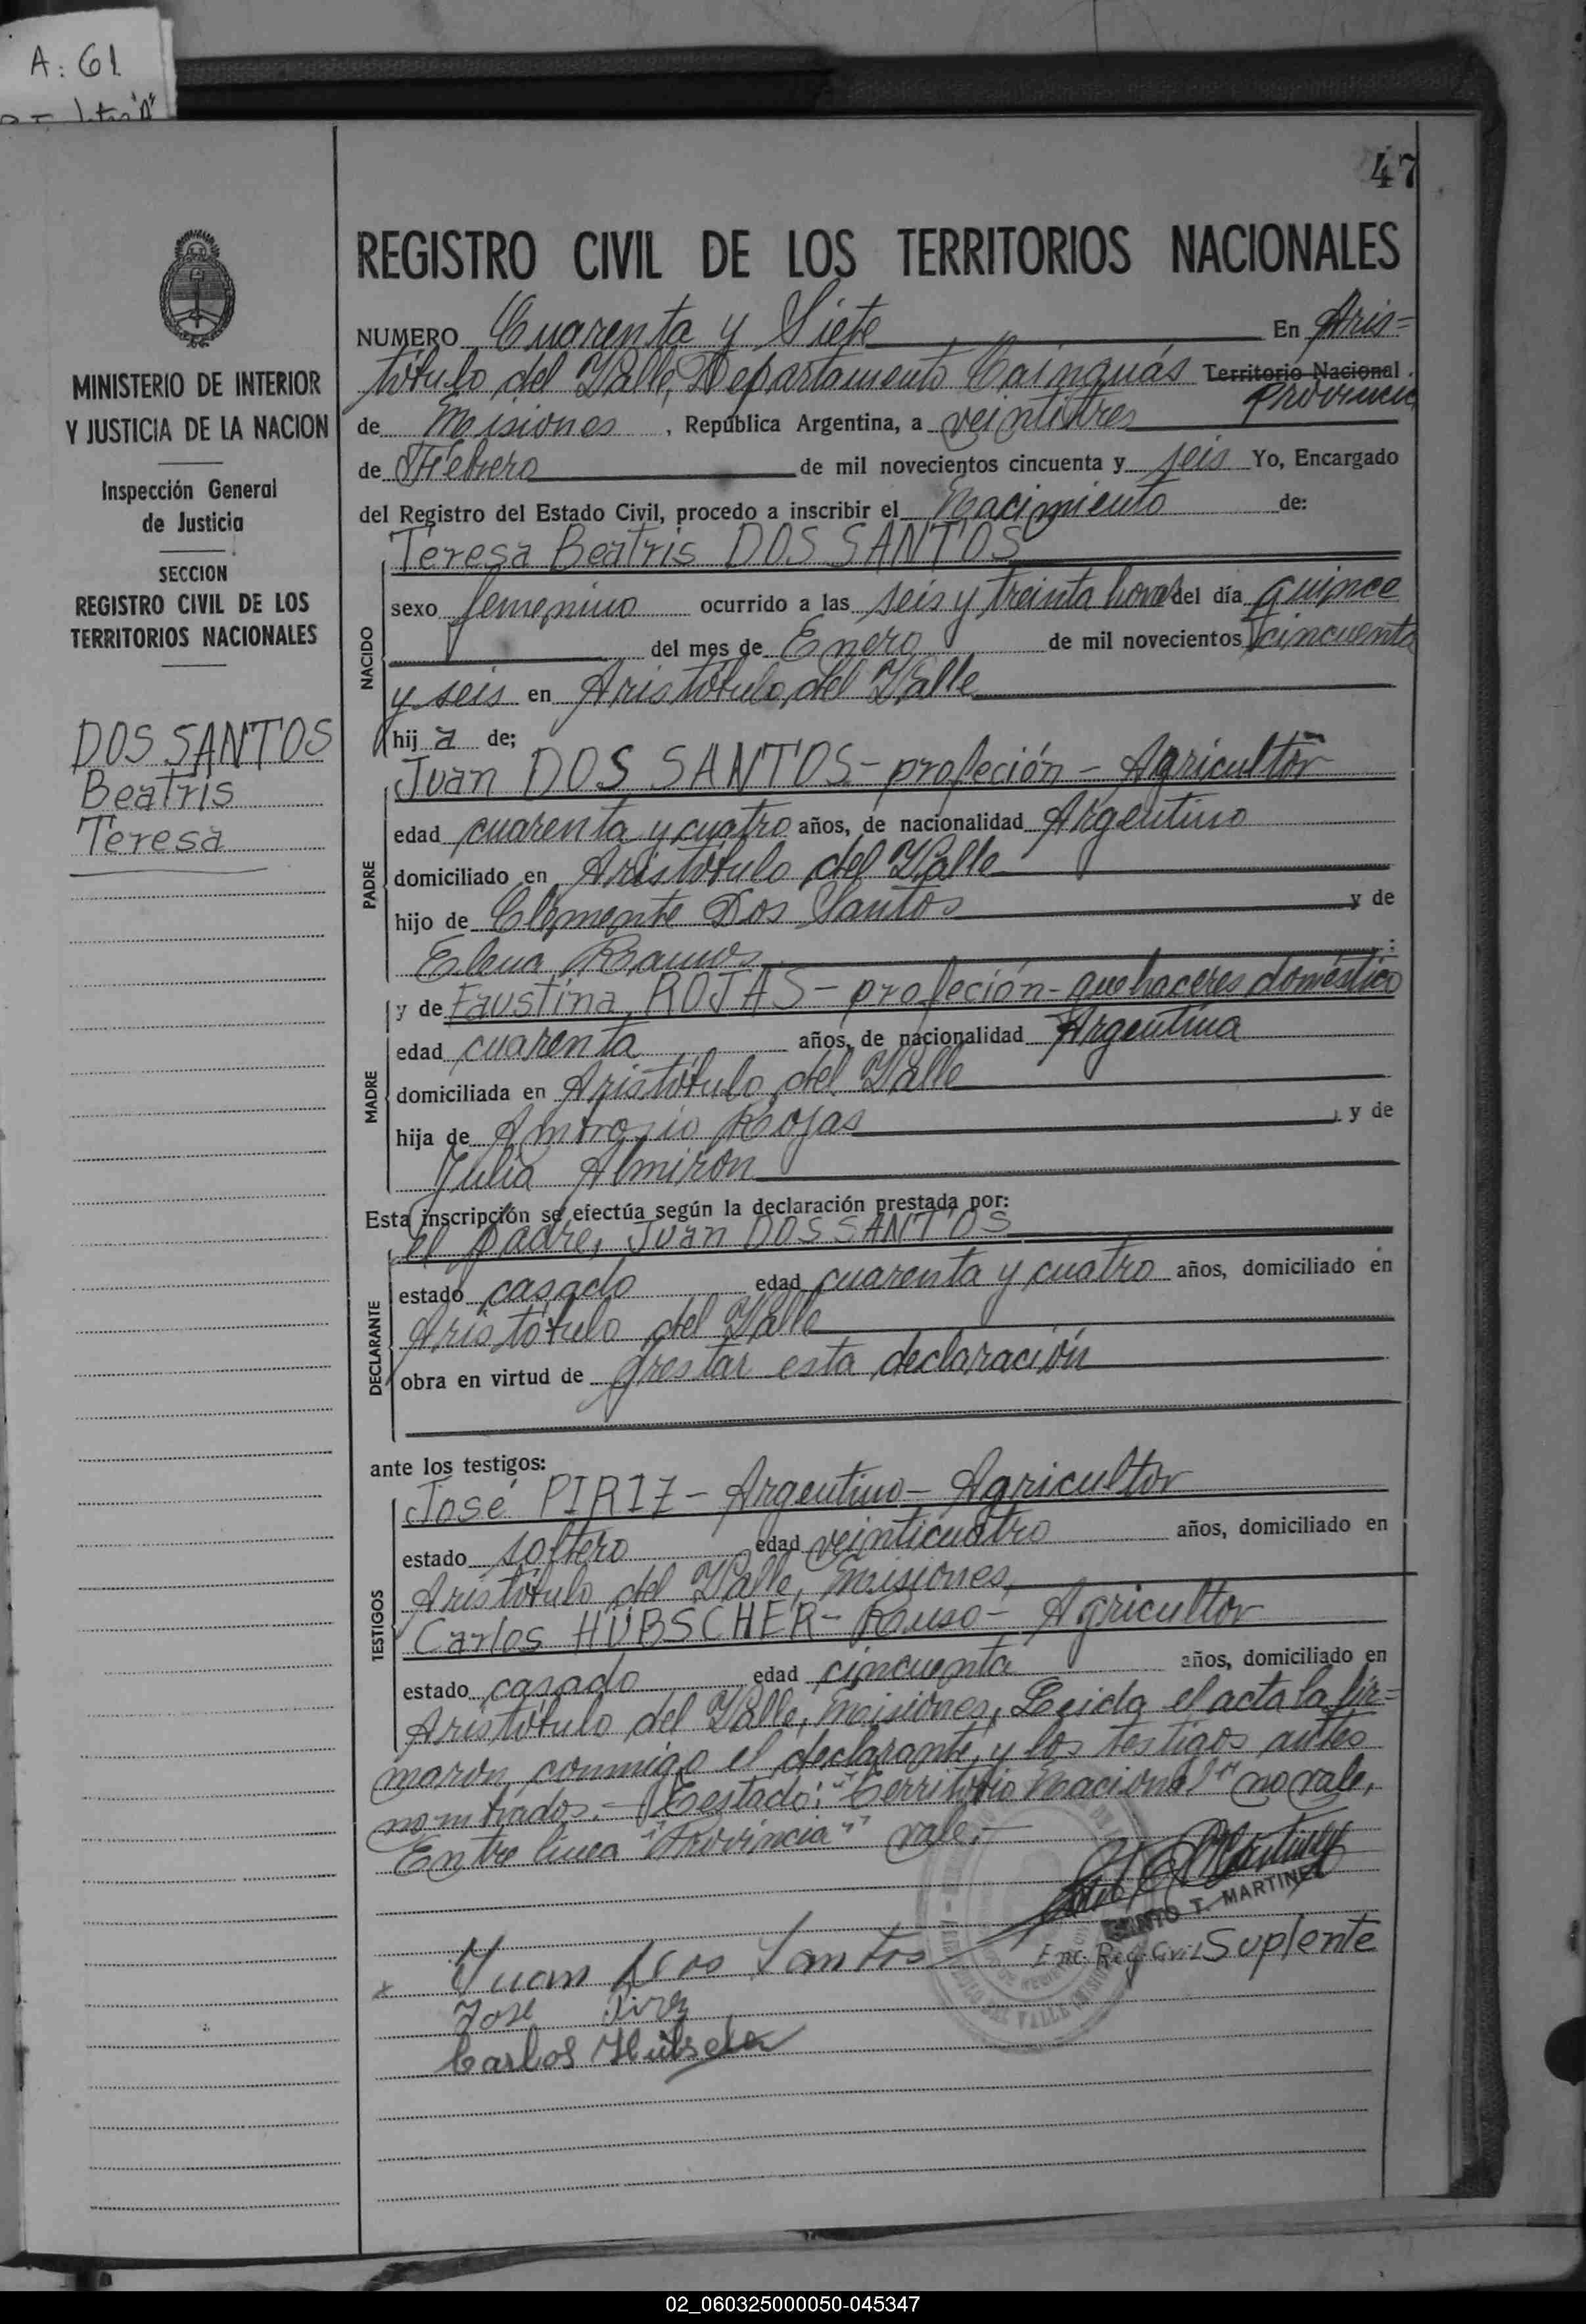 A: 61
47
REGISTRO CIVIL DE LOS TERRITORIOS NACIONALES
MINISTERIO DE INTERIOR
Y JUSTICIA DE LA NACION
Inspección General
de Justicia
SECCION
REGISTRO CIVIL DE LOS
TERRITORIOS NACIONALES
DOS SANTOS
Beatris
Teresa
NUMERO Cuarenta y Siete En Aris=
tóbulo del Valle, Departamento Cainguás Territorio Nacional
Provincia
de Misiones, República Argentina, a veintitres
de Febrero de mil novecientos cincuenta y seis Yo, Encargado
del Registro del Estado Civil, procedo a inscribir el Nacimiento de:
NACIDO
Teresa Beatris DOS SANTOS
sexo femenino ocurrido a las seis y treinta horas del día quince
del mes de Enero de mil novecientos cincuenta
y seis en Aristóbulo del Valle
hij a de;
PADRE
Juan DOS SANTOS - profeción - Agricultor
edad cuarenta y cuatro años, de nacionalidad Argentino
domiciliado en Aristóbulo del Valle
hijo de Clemente Dos Santos y de
Elena Ramos;
MADRE
y de Faustina ROJAS - profeción - quehaceres doméstico
edad cuarenta años, de nacionalidad Argentina
domiciliada en Aristóbulo del Valle
hija de Amrosio Rojas, y de
Julia Almiron
Esta inscripción se efectúa según la declaración prestada por:
DECLARANTE
el padre, Juan DOS SANTOS
estado casado edad cuarenta y cuatro años, domiciliado en
Aristóbulo del Valle
obra en virtud de prestar esta declaración
ante los testigos:
TESTIGOS
José PIRIZ - Argentino - Agricultor
estado soltero edad veinticuatro años, domiciliado en
Aristóbulo del Valle, Misiones,
Carlos HÜBSCHER - Ruso - Agricultor
estado casado edad cincuenta años, domiciliado en
Aristóbulo del Valle, Misiones, Leida el acta la fir=
maron conmigo el declarante y los testigos antes
nombrados. - Testado: "Territorio Nacional" no vale,
Entre linea "Provincia" vale. -
T. MARTINEZ
Enc. Reg. Civil Suplente
x Juan Dos Santos
José Piriz
Carlos Hübscher
02_060325000050-045347